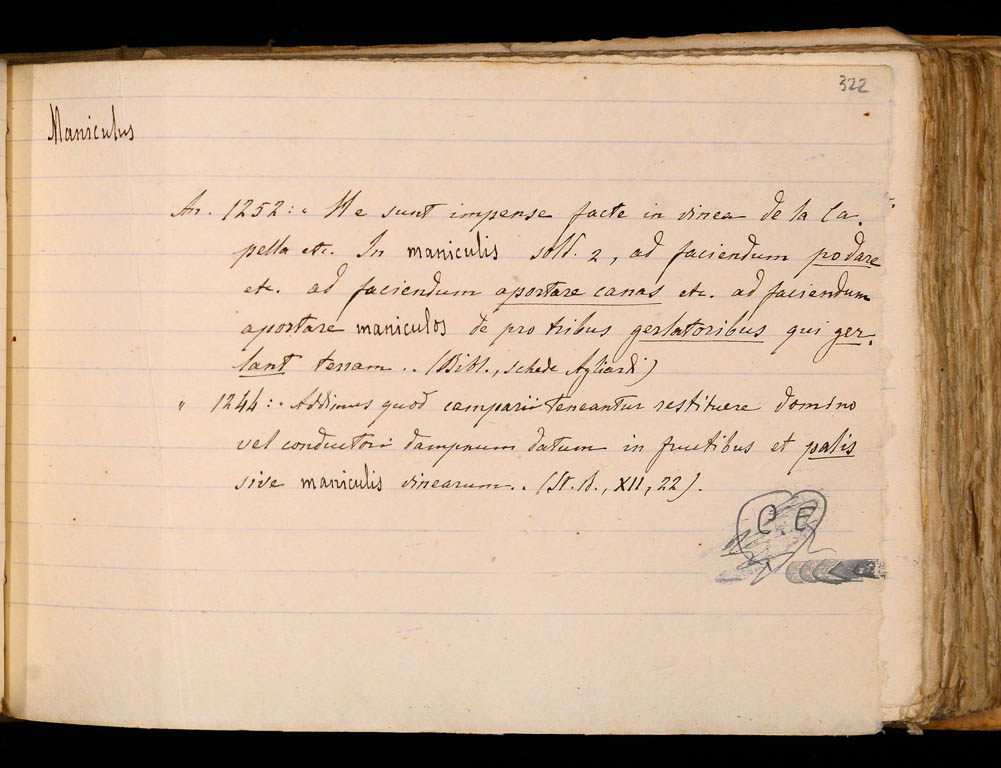 322
Maniculus
An. 1252: « He sunt impense facte in vinea de la Ca-
pella etc. In maniculis sold. 2, ad faciendum podare
etc. ad faciendum aportare canas etc. ad faciendum
aportare maniculos de pro tribus gerlatoribus qui ger-
lant terram .. (Bibl., schede Agliardi)
" 1244: « Addimus quod camparii teneantur restituere domino
vel conductori dampnum datum in fructibus et palis
sive maniculis vinearum .. (St. B., XII, 22).
C E